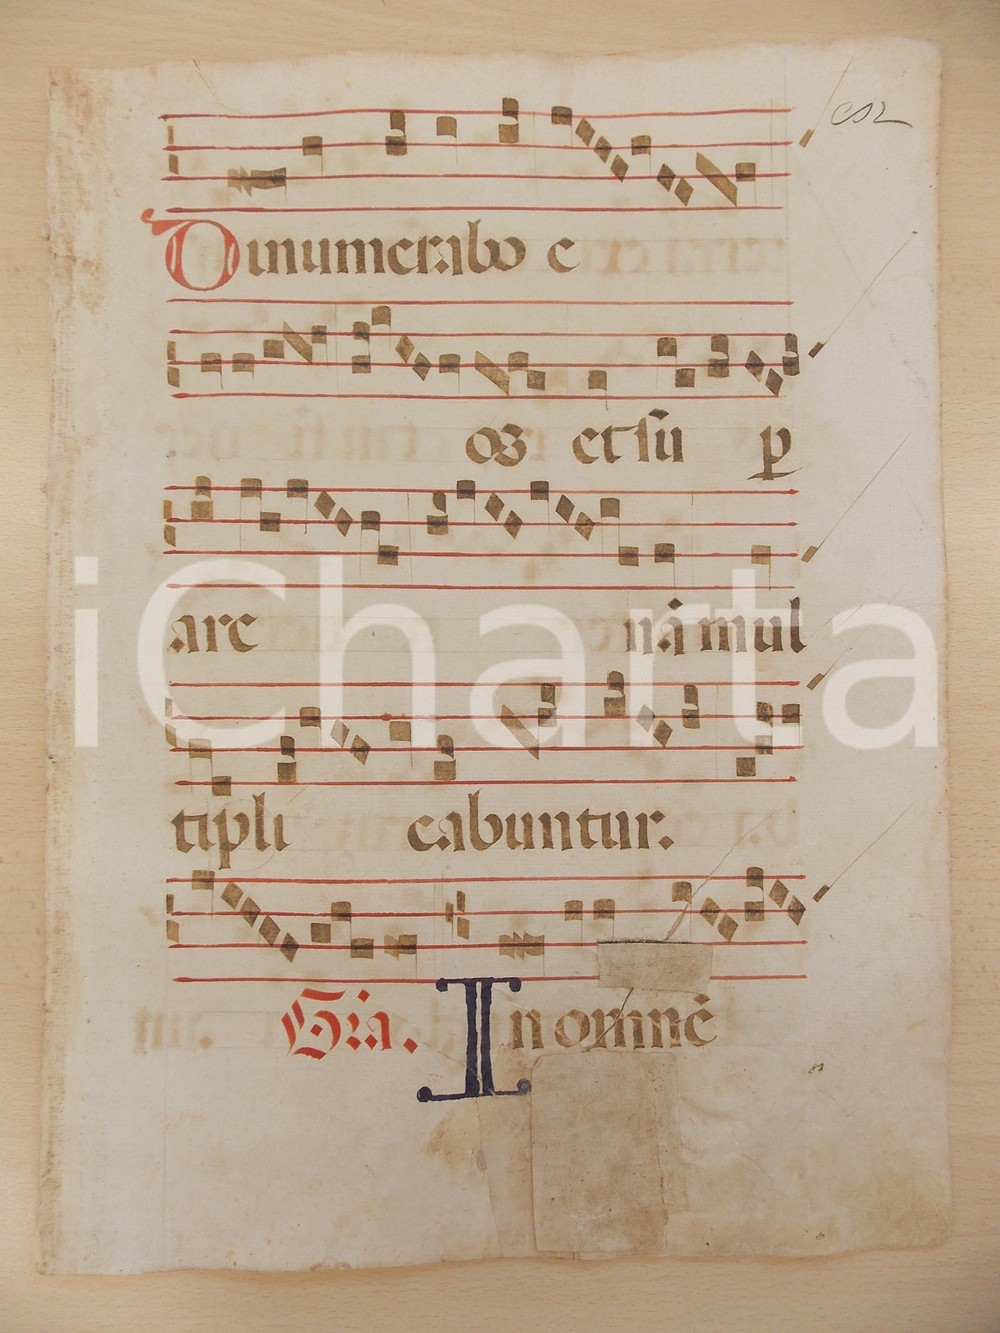 Dinumerabo e
os et su p̱
are nā mul
tipli cabuntur.
Gƚia. In omnē
82
iCharta